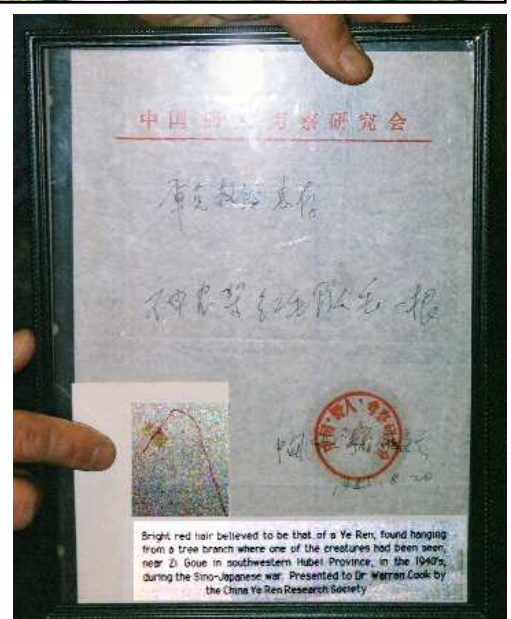 中国 考察研究会
教授惠存
神农架红毛野人毛一根
中国
Bright red hair believed to be that of a Ye Ren, found hanging
from a tree branch where one of the creatures had been seen,
near Zi Goue in southwestern Hubei Province, in the 1940's,
during the Sino-Japanese war. Presented to Dr Warren Cook by
the China Ye Ren Research Society